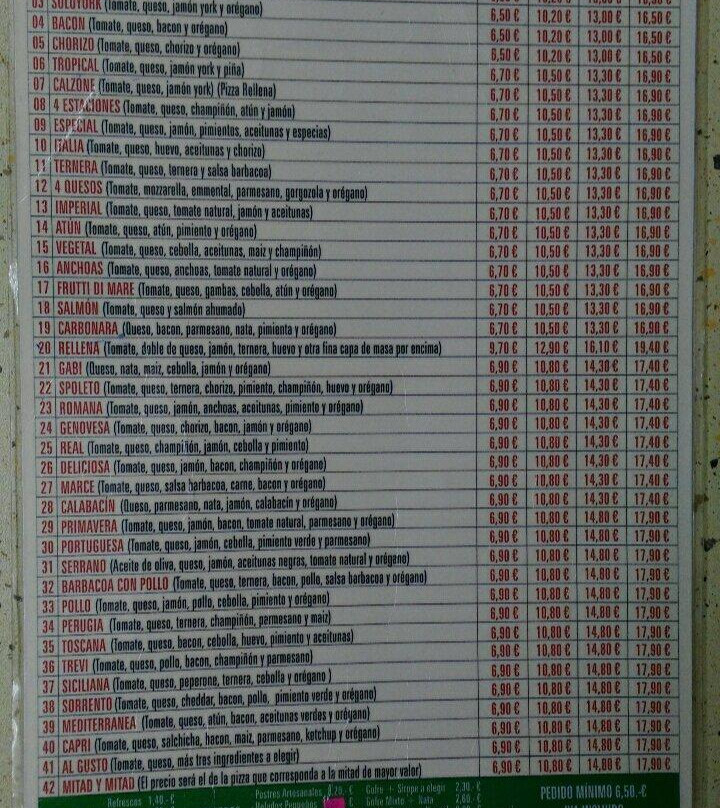 03 SOLOYORK (Tomate, queso, jamón york y orégano) 6,50 € 10,20 € 13,00 € 16,50 €
04 BACON (Tomate, queso, bacon y orégano) 6,50 € 10,20 € 13,00 € 16,50 €
05 CHORIZO (Tomate, queso, chorizo y orégano) 6,50 € 10,20 € 13,00 € 16,50 €
06 TROPICAL (Tomate, queso, jamón york y piña) 6,70 € 10,50 € 13,30 € 16,90 €
07 CALZONE (Tomate, queso, jamón york) (Pizza Rellena) 6,70 € 10,50 € 13,30 € 16,90 €
08 4 ESTACIONES (Tomate, queso, champiñón, atún y jamón) 6,70 € 10,50 € 13,30 € 16,90 €
09 ESPECIAL (Tomate, queso, jamón, pimientos, aceitunas y especias) 6,70 € 10,50 € 13,30 € 16,90 €
10 ITALIA (Tomate, queso, huevo, aceitunas y chorizo) 6,70 € 10,50 € 13,30 € 16,90 €
11 TERNERA (Tomate, queso, ternera y salsa barbacoa) 6,70 € 10,50 € 13,30 € 16,90 €
12 4 QUESOS (Tomate, mozzarella, emmental, parmesano, gorgozola y orégano) 6,70 € 10,50 € 13,30 € 16,90 €
13 IMPERIAL (Tomate, queso, tomate natural, jamón y aceitunas) 6,70 € 10,50 € 13,30 € 16,90 €
14 ATÚN (Tomate, queso, atún, pimiento y orégano) 6,70 € 10,50 € 13,30 € 16,90 €
15 VEGETAL (Tomate, queso, cebolla, aceitunas, maiz y champiñón) 6,70 € 10,50 € 13,30 € 16,90 €
16 ANCHOAS (Tomate, queso, anchoas, tomate natural y orégano) 6,70 € 10,50 € 13,30 € 16,90 €
17 FRUTTI DI MARE (Tomate, queso, gambas, cebolla, atún y orégano) 6,70 € 10,50 € 13,30 € 16,90 €
18 SALMÓN (Tomate, queso y salmón ahumado) 6,70 € 10,50 € 13,30 € 16,90 €
19 CARBONARA (Queso, bacon, parmesano, nata, pimienta y orégano) 6,70 € 10,50 € 13,30 € 16,90 €
20 RELLENA (Tomate, doble de queso, jamón, ternera, huevo y otra fina capa de masa por encima) 9,70 € 12,90 € 16,10 € 19,40 €
21 GABI (Queso, nata, maiz, cebolla, jamón y orégano) 6,90 € 10,80 € 14,30 € 17,40 €
22 SPOLETO (Tomate, queso, ternera, chorizo, pimiento, champiñón, huevo y orégano) 6,90 € 10,80 € 14,30 € 17,40 €
23 ROMANA (Tomate, queso, jamón, anchoas, aceitunas, pimiento y orégano) 6,90 € 10,80 € 14,30 € 17,40 €
24 GENOVESA (Tomate, queso, chorizo, bacon, jamón y orégano) 6,90 € 10,80 € 14,30 € 17,40 €
25 REAL (Tomate, queso, champiñón, jamón, cebolla y pimiento) 6,90 € 10,80 € 14,30 € 17,40 €
26 DELICIOSA (Tomate, queso, jamón, bacon, champiñón y orégano) 6,90 € 10,80 € 14,30 € 17,40 €
27 MARCE (Tomate, queso, salsa barbacoa, carne, bacon y orégano) 6,90 € 10,80 € 14,30 € 17,40 €
28 CALABACÍN (Queso, parmesano, nata, jamón, calabacín y orégano) 6,90 € 10,80 € 14,30 € 17,40 €
29 PRIMAVERA (Tomate, queso, jamón, bacon, tomate natural, parmesano y orégano) 6,90 € 10,80 € 14,80 € 17,90 €
30 PORTUGUESA (Tomate, queso, jamón, cebolla, pimiento verde y parmesano) 6,90 € 10,80 € 14,80 € 17,90 €
31 SERRANO (Aceite de oliva, queso, jamón, aceitunas negras, tomate natural y orégano) 6,90 € 10,80 € 14,80 € 17,90 €
32 BARBACOA CON POLLO (Tomate, queso, ternera, bacon, pollo, salsa barbacoa y orégano) 6,90 € 10,80 € 14,80 € 17,90 €
33 POLLO (Tomate, queso, jamón, pollo, cebolla, pimiento y orégano) 6,90 € 10,80 € 14,80 € 17,90 €
34 PERUGIA (Tomate, queso, ternera, champiñón, parmesano y maiz) 6,90 € 10,80 € 14,80 € 17,90 €
35 TOSCANA (Tomate, queso, bacon, cebolla, huevo, pimiento y aceitunas) 6,90 € 10,80 € 14,80 € 17,90 €
36 TREVI (Tomate, queso, pollo, bacon, champiñón y parmesano) 6,90 € 10,80 € 14,80 € 17,90 €
37 SICILIANA (Tomate, queso, peperone, ternera, cebolla y orégano ) 6,90 € 10,80 € 14,80 € 17,90 €
38 SORRENTO (Tomate, queso, cheddar, bacon, pollo, pimiento verde y orégano) 6,90 € 10,80 € 14,80 € 17,90 €
39 MEDITERRANEA (Tomate, queso, atún, bacon, aceitunas verdes y orégano) 6,90 € 10,80 € 14,80 € 17,90 €
40 CAPRI (Tomate, queso, salchicha, bacon, maiz, parmesano, ketchup y orégano) 6,90 € 10,80 € 14,80 € 17,90 €
41 AL GUSTO (Tomate, queso, más tres ingredientes a elegir) 6,90 € 10,80 € 14,80 € 17,90 €
42 MITAD Y MITAD (El precio será el de la pizza que corresponda a la mitad de mayor valor)
Refrescos 1,40.-€ Postres Artesanales Gofre + Sirope a elegir 2,30.-€ PEDIDO MÍNIMO 6,50.-€
Helados Pequeños Gofre Mixto + Nata 2,60.-€ IVA INCLUIDO